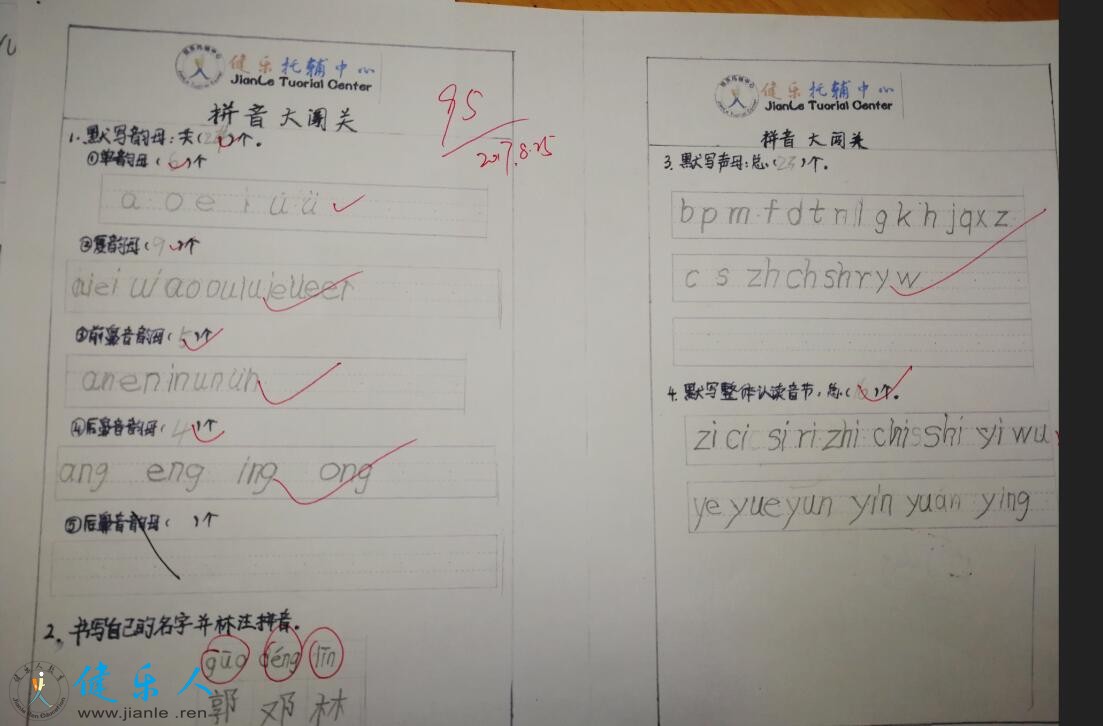 健乐托辅中心
JianLe Tuorial Center
拼音大闯关
95
2017.8.25
1.默写韵母:共(24)个。
①单韵母(6)个
a o e i u ü
②复韵母(9)个
ai ei ui ao ou iu ie üe er
③前鼻音韵母(5)个
an en in un ün
④后鼻音韵母(4)个
ang eng ing ong
⑤后鼻音韵母( )个
2.书写自己的名字并标注拼音。
guō lín
郭 邓 林
健乐人
www.jianle.ren
健乐托辅中心
JianLe Tuorial Center
拼音大闯关
3.默写声母:总(23)个。
b p m f d t n l g k h j q x z
c s zh ch sh r y w
4.默写整体认读音节,总(16)个。
zi ci si ri zhi chi shi yi wu
ye yue yun yin yuan ying